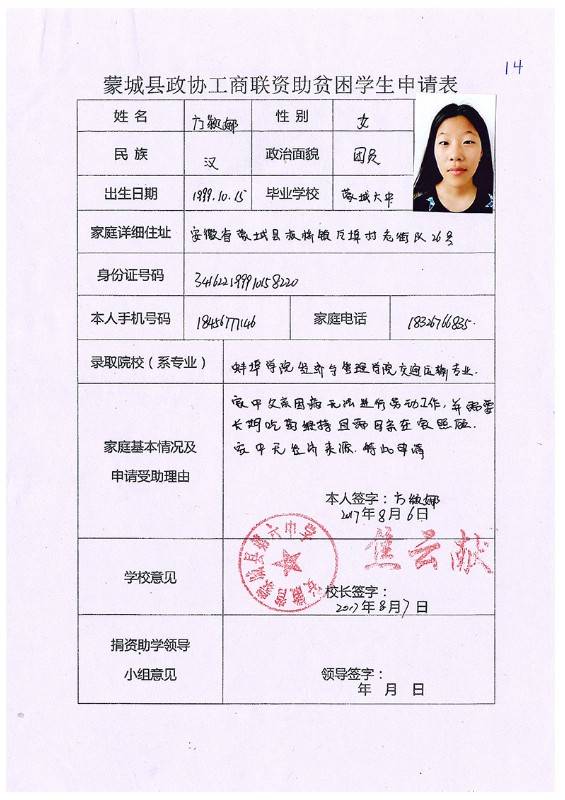 14
蒙城县政协工商联资助贫困学生申请表
姓 名 方敏娜 性 别 女
民 族 汉 政治面貌 团员
出生日期 1999.10.15 毕业学校 蒙城六中
家庭详细住址 安徽省蒙城县 村老街队26号
身份证号码 341622199910158220
本人手机号码 18456777146 家庭电话 18326766835.
录取院校（系专业） 蚌埠学院经济与管理学院交通运输专业.
家中父亲因病无法进行劳动工作，并需要
长期吃药维持且 母亲在家照顾.
家庭基本情况及
家中无经济来源.特此申请
申请受助理由
本人签字：方敏娜
2017年8月6日
安徽省蒙城县第六中学
焦云献
学校意见
校长签字：
2017年8月7日
捐资助学领导
小组意见
领导签字：
年 月 日